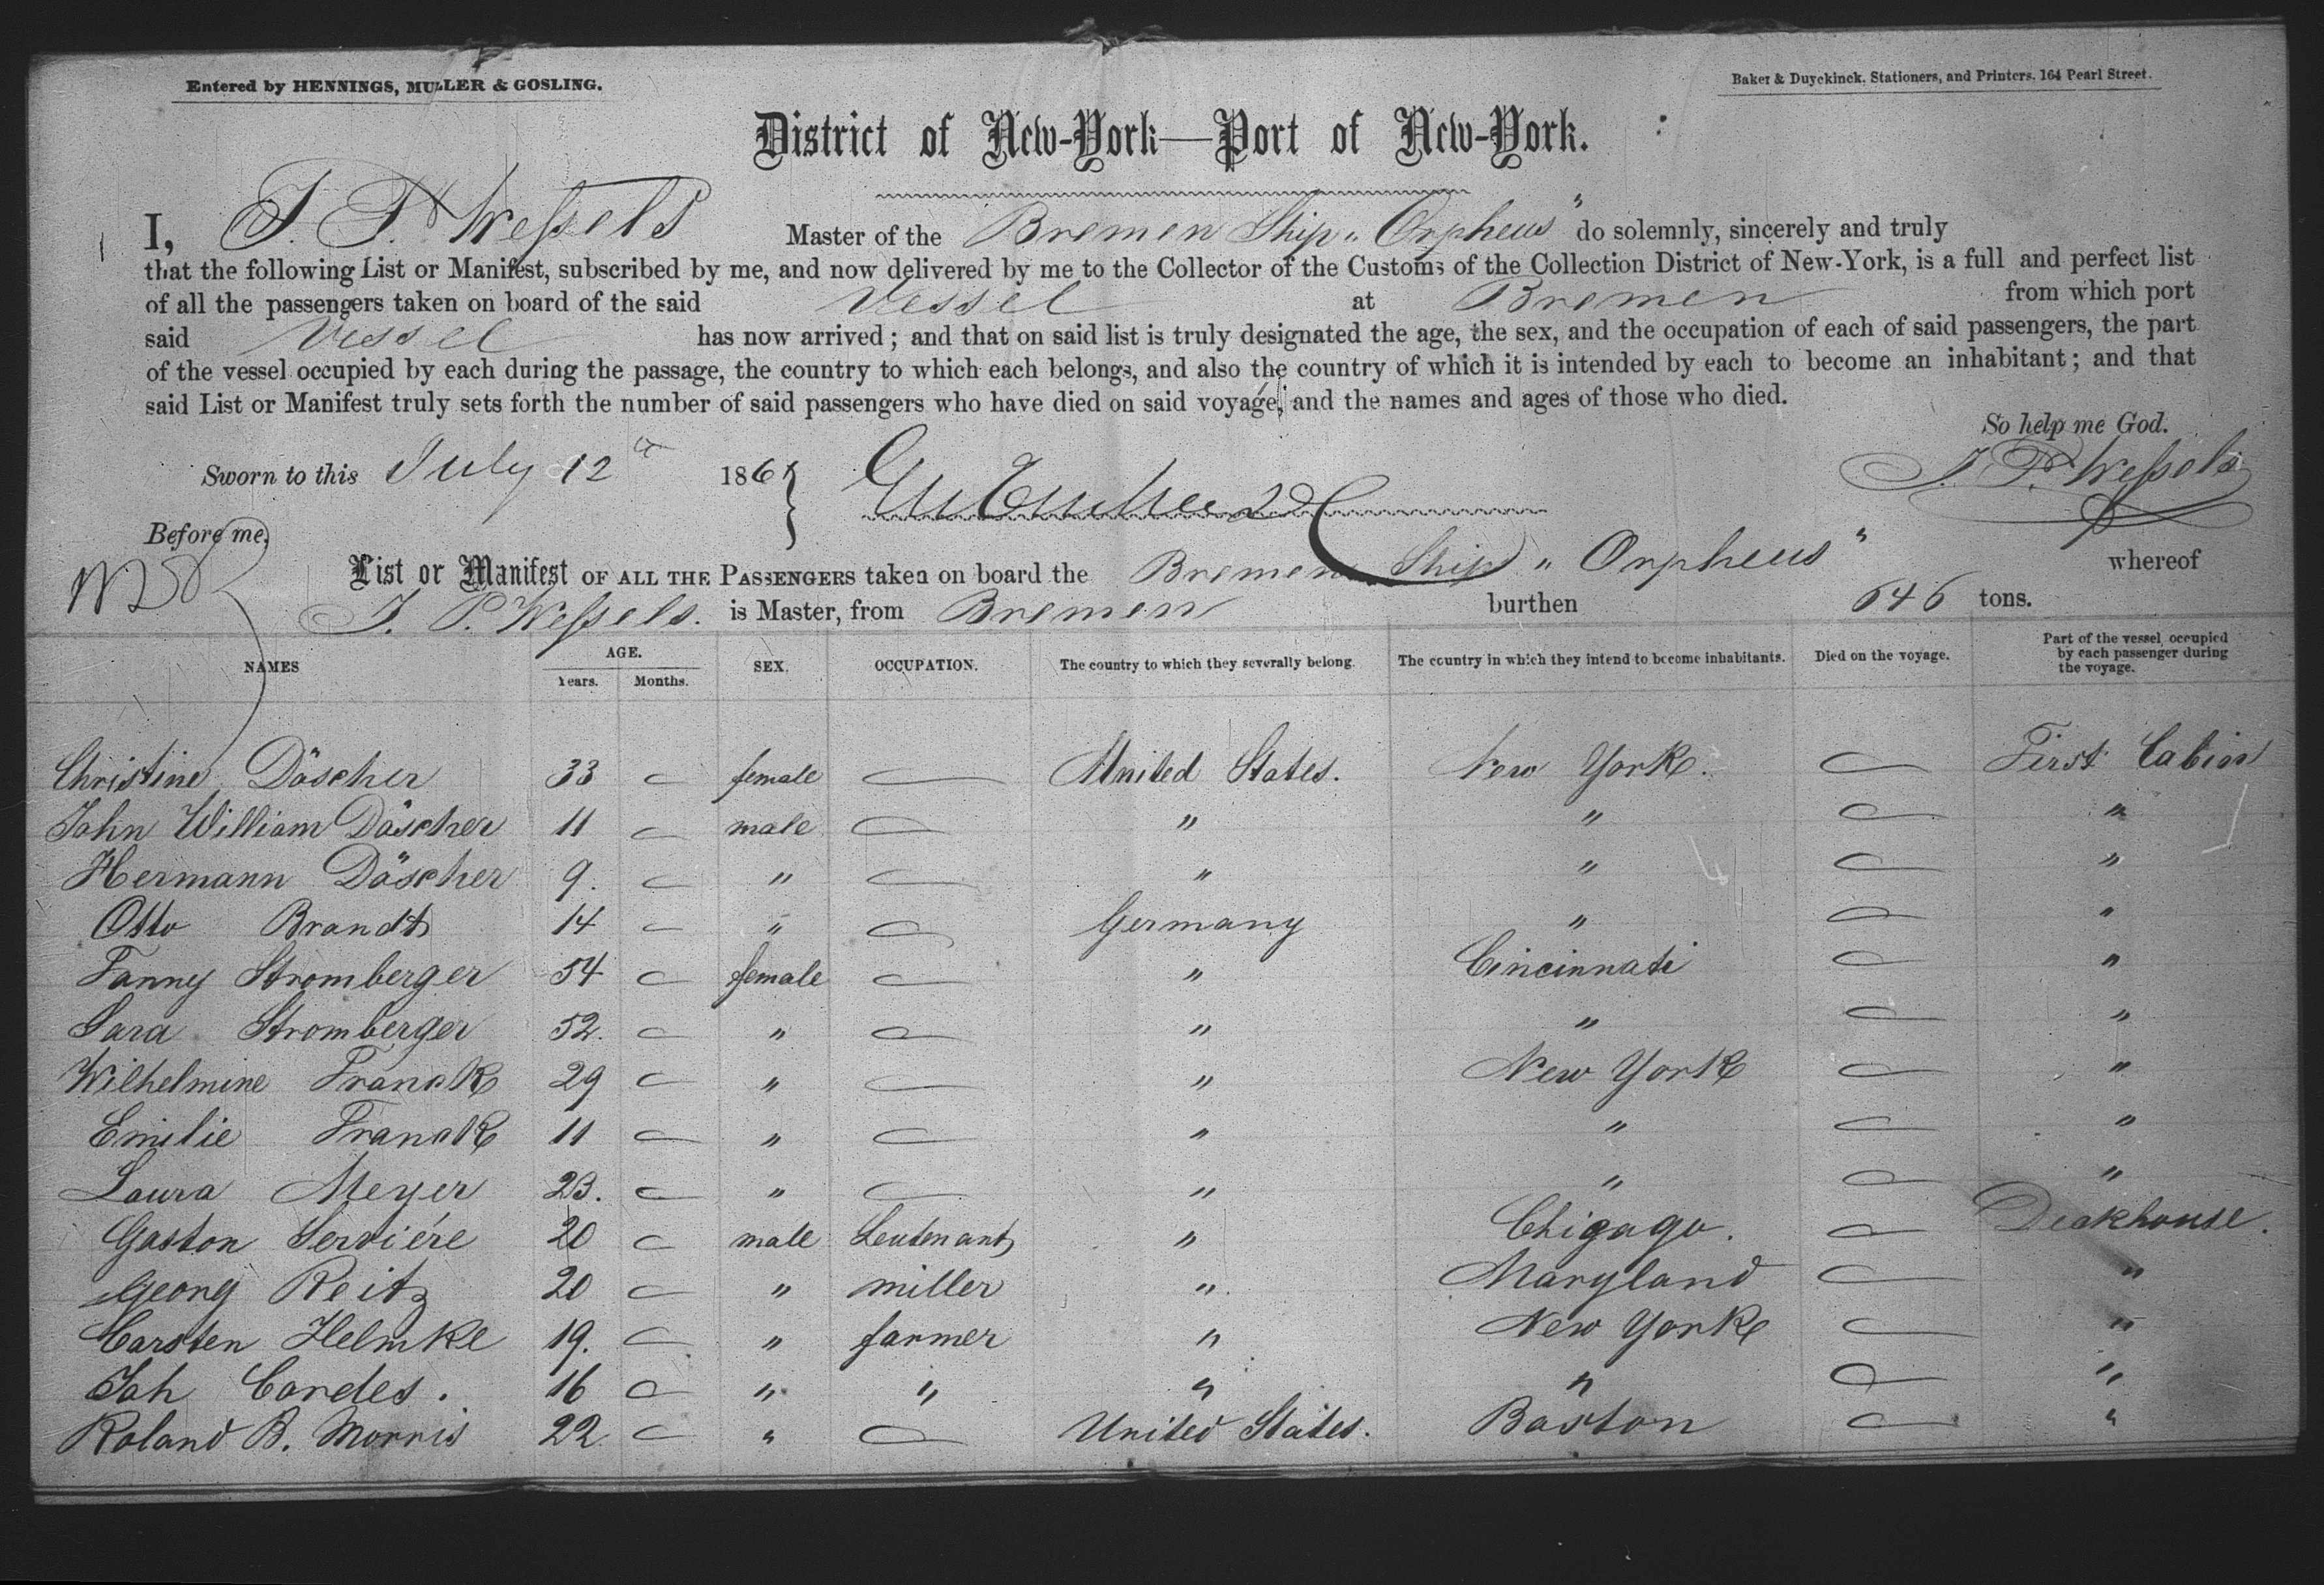 Entered by HENNINGS, MULLER & GOSLING.
Baker & Duyckinck, Stationers, and Printers, 164 Pearl Street.
District of New-York—Port of New-York.
I, J. P. Weſsels Master of the Bremen Ship "Orpheus" do solemnly, sincerely and truly
that the following List or Manifest, subscribed by me, and now delivered by me to the Collector of the Customs of the Collection District of New-York, is a full and perfect list
of all the passengers taken on board of the said Vessel at Bremen from which port
said Vessel has now arrived; and that on said list is truly designated the age, the sex, and the occupation of each of said passengers, the part
of the vessel occupied by each during the passage, the country to which each belongs, and also the country of which it is intended by each to become an inhabitant; and that
said List or Manifest truly sets forth the number of said passengers who have died on said voyage, and the names and ages of those who died.
So help me God.
Sworn to this July 12 186 J. P. Weſsels
Before me,
List or Manifest OF ALL THE PASSENGERS taken on board the Bremen Ship "Orpheus" whereof
J. P. Weſsels. is Master, from Bremen burthen 646 tons.
NAMES AGE. Years. Months. SEX. OCCUPATION. The country to which they severally belong. The country in which they intend to become inhabitants. Died on the voyage. Part of the vessel occupied by each passenger during the voyage.
Christine Döscher 33 — female — United States. New York. — First Cabin
John William Döscher 11 — male — " " — "
Hermann Döscher 9. — " — " " — "
Otto Brandt 14 — " — Germany " — "
Fanny Stromberger 54 — female — " Cincinnati — "
Sara Stromberger 52. — " — " " — "
Wilhelmine Franck 29 — " — " New York — "
Emilie Franck 11 — " — " " — "
Laura Meyer 23. — " — " " — "
Gaston Serviére 20 — male Leutenant " Chigago. — Deakhouse.
Georg Reitz 20 — " miller " Maryland — "
Carsten Helmke 19. — " farmer " New York — "
Joh Cordes. 16 — " " " " — "
Roland B. Morris 22 — " — United States. Boston — "